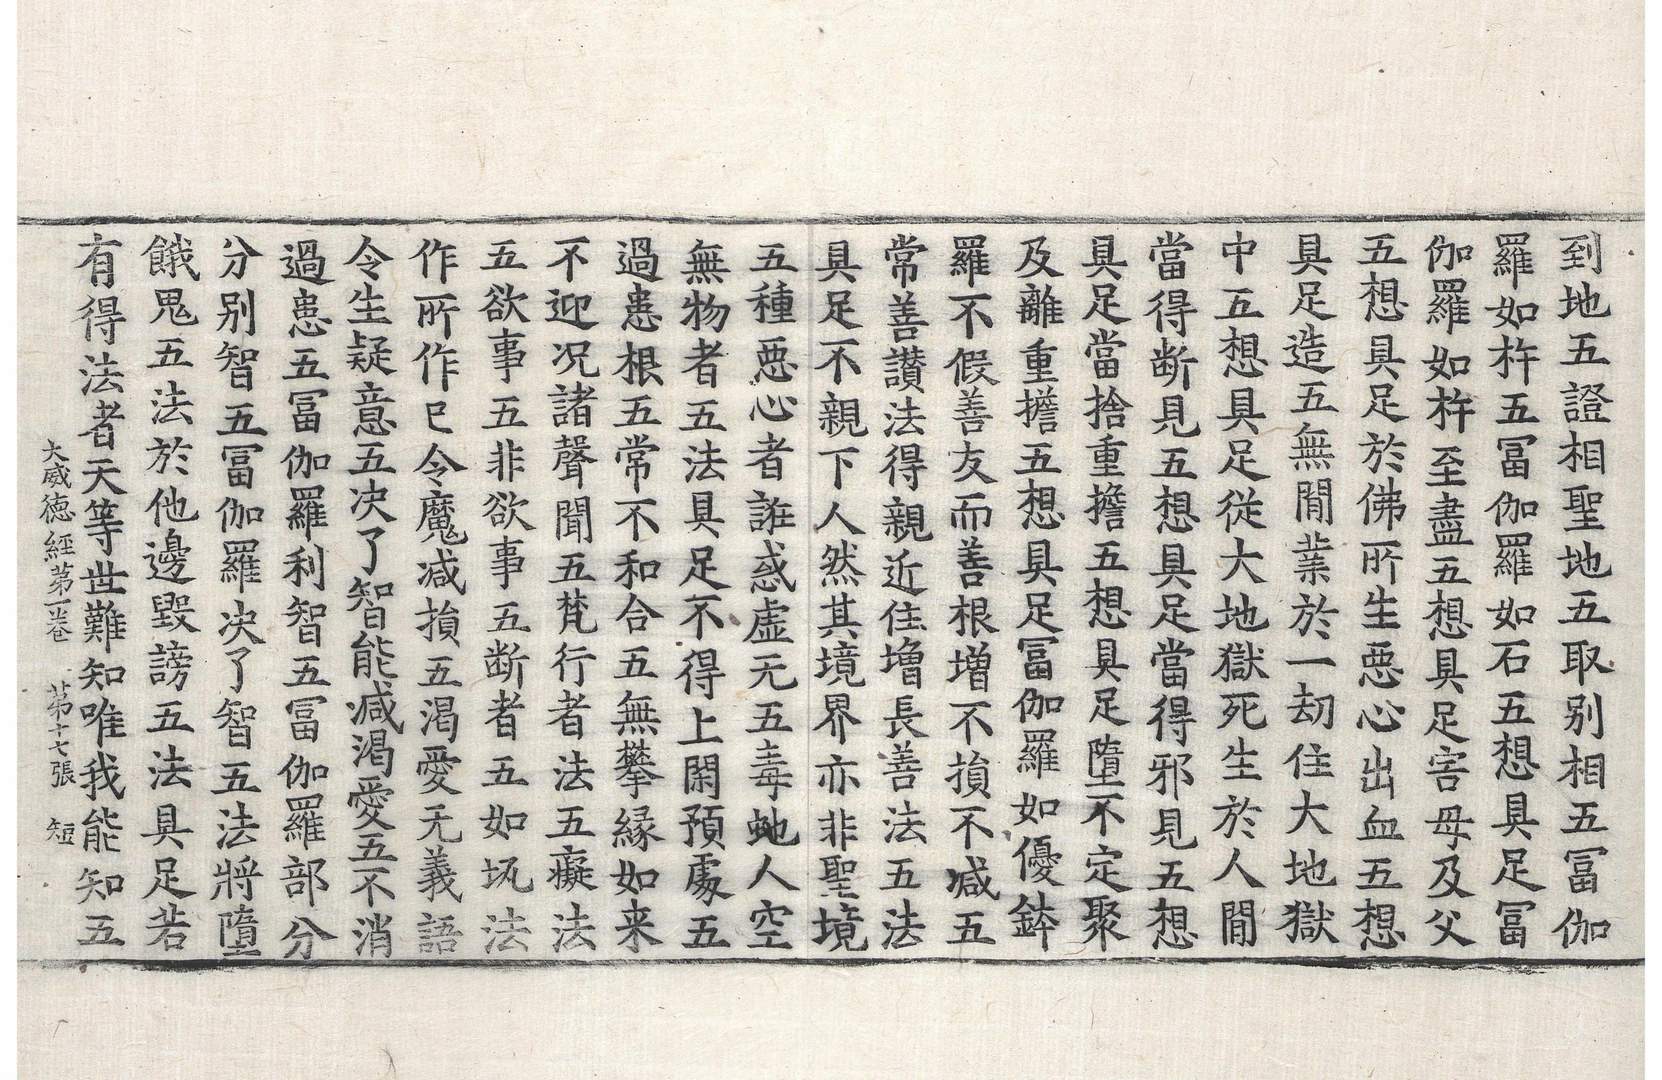 到地五證相聖地五取别相五冨伽
羅如杵五冨伽羅如石五想具足冨
伽羅如杵至盡五想具足害母及父
五想具足於佛所生惡心出血五想
具足造五無閒業於一劫住大地獄
中五想具足從大地獄死生於人閒
當得断見五想具足當得邪見五想
具足當捨重擔五想具足墮不定聚
及離重擔五想具足冨伽羅如優鉢
羅不假善友而善根增不損不减五
常善讃法得親近住增長善法五法
具足不親下人然其境界亦非聖境
五種惡心者誑惑虛无五毒虵人空
無物者五法具足不得上閑預處五
過患根五常不和合五無攀縁如来
不迎况諸聲聞五梵行者法五癡法
五欲事五非欲事五断者五如坈法
作所作作已令魔减損五渴愛无義語
令生疑意五决了智能减渴愛五不消
過患五冨伽羅利智五冨伽羅部分
分别智五冨伽羅决了智五法將墮
餓鬼五法於他邊毀謗五法具足若
有得法者天等世難知唯我能知五
大威徳經苐一卷 苐十七張 短